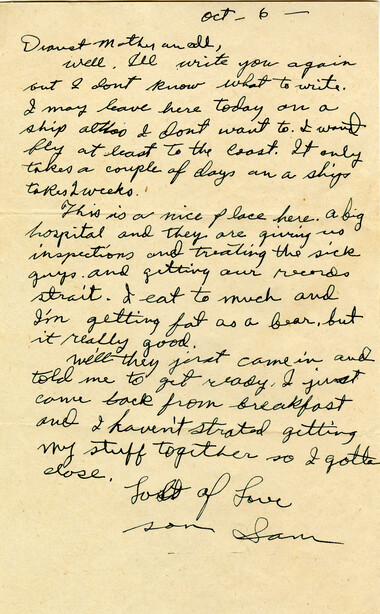 Oct - 6 -
Dearest Mother an all,
Well, I'll write you again
but I dont know what to write.
I may leave here today on a
ship I dont want to. I want
fly at least to the coast. It only
takes a couple of days an a ships
takes 2 weeks.
This is a nice place here. a big
hospital and they are giving us
inspections and treating the sick
guys. and getting our records
strait. I eat to much and
I'm getting fat as a bear, but
it really good.
Well they just came in and
told me to get ready. I just
came back from breakfast
and I haven't strated getting
my stuff together so I gotta
close.
of Love
son Sam